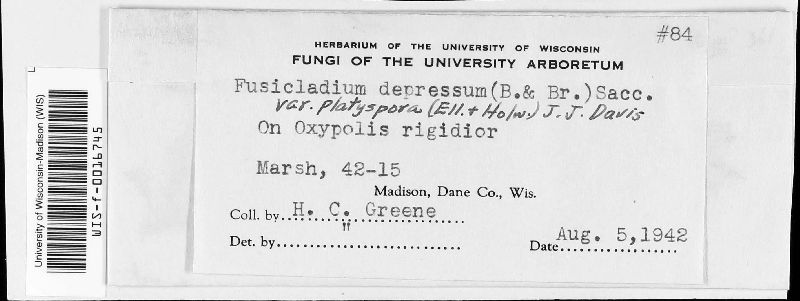 #84
HERBARIUM OF THE UNIVERSITY OF WISCONSIN
FUNGI OF THE UNIVERSITY ARBORETUM
Fusicladium depressum(B.& Br.)Sacc.
var. platyspora (Ell. + Holw.) J. J. Davis
On Oxypolis rigidior
Marsh, 42-15
Madison, Dane Co., Wis.
Coll. by H. C. Greene
Det. by "
Date Aug. 5,1942
University of Wisconsin-Madison (WIS)
WIS-f-0016745